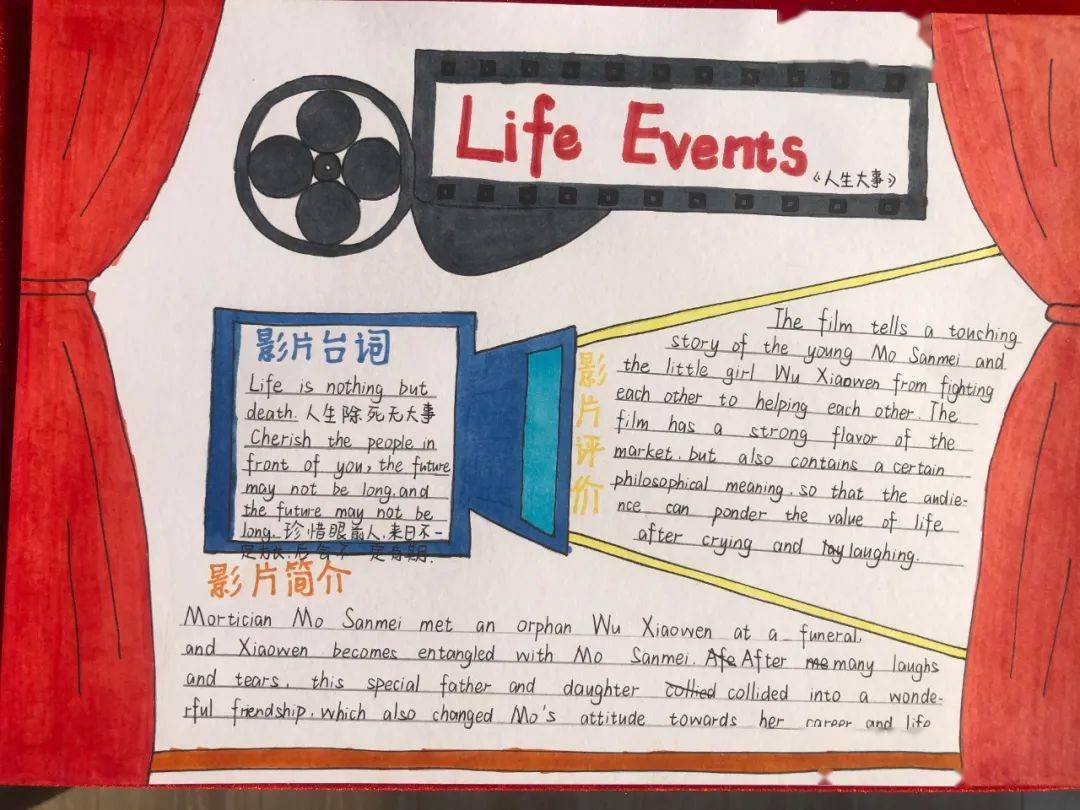 Life Events
《人生大事》
影片台词
Life is nothing but
death. 人生除死无大事
Cherish the people in
front of you, the future
may not be long. and
the future may not be
long. 珍惜眼前人.来日不一
定方长.后会不一定有期.
影片评价
The film tells a touching
story of the young Mo Sanmei and
the little girl Wu Xiaowen from fighting
each other to helping each other. The
film has a strong flavor of the
market. but also contains a certain
philosophical meaning. so that the audie-
nce can ponder the value of life
after crying and laughing.
影片简介
Mortician Mo Sanmei met an orphan Wu Xiaowen at a funeral,
and Xiaowen becomes entangled with Mo Sanmei. After many laughs
and tears, this special father and daughter collided into a wonde-
rful friendship. which also changed Mo's attitude towards her career and life